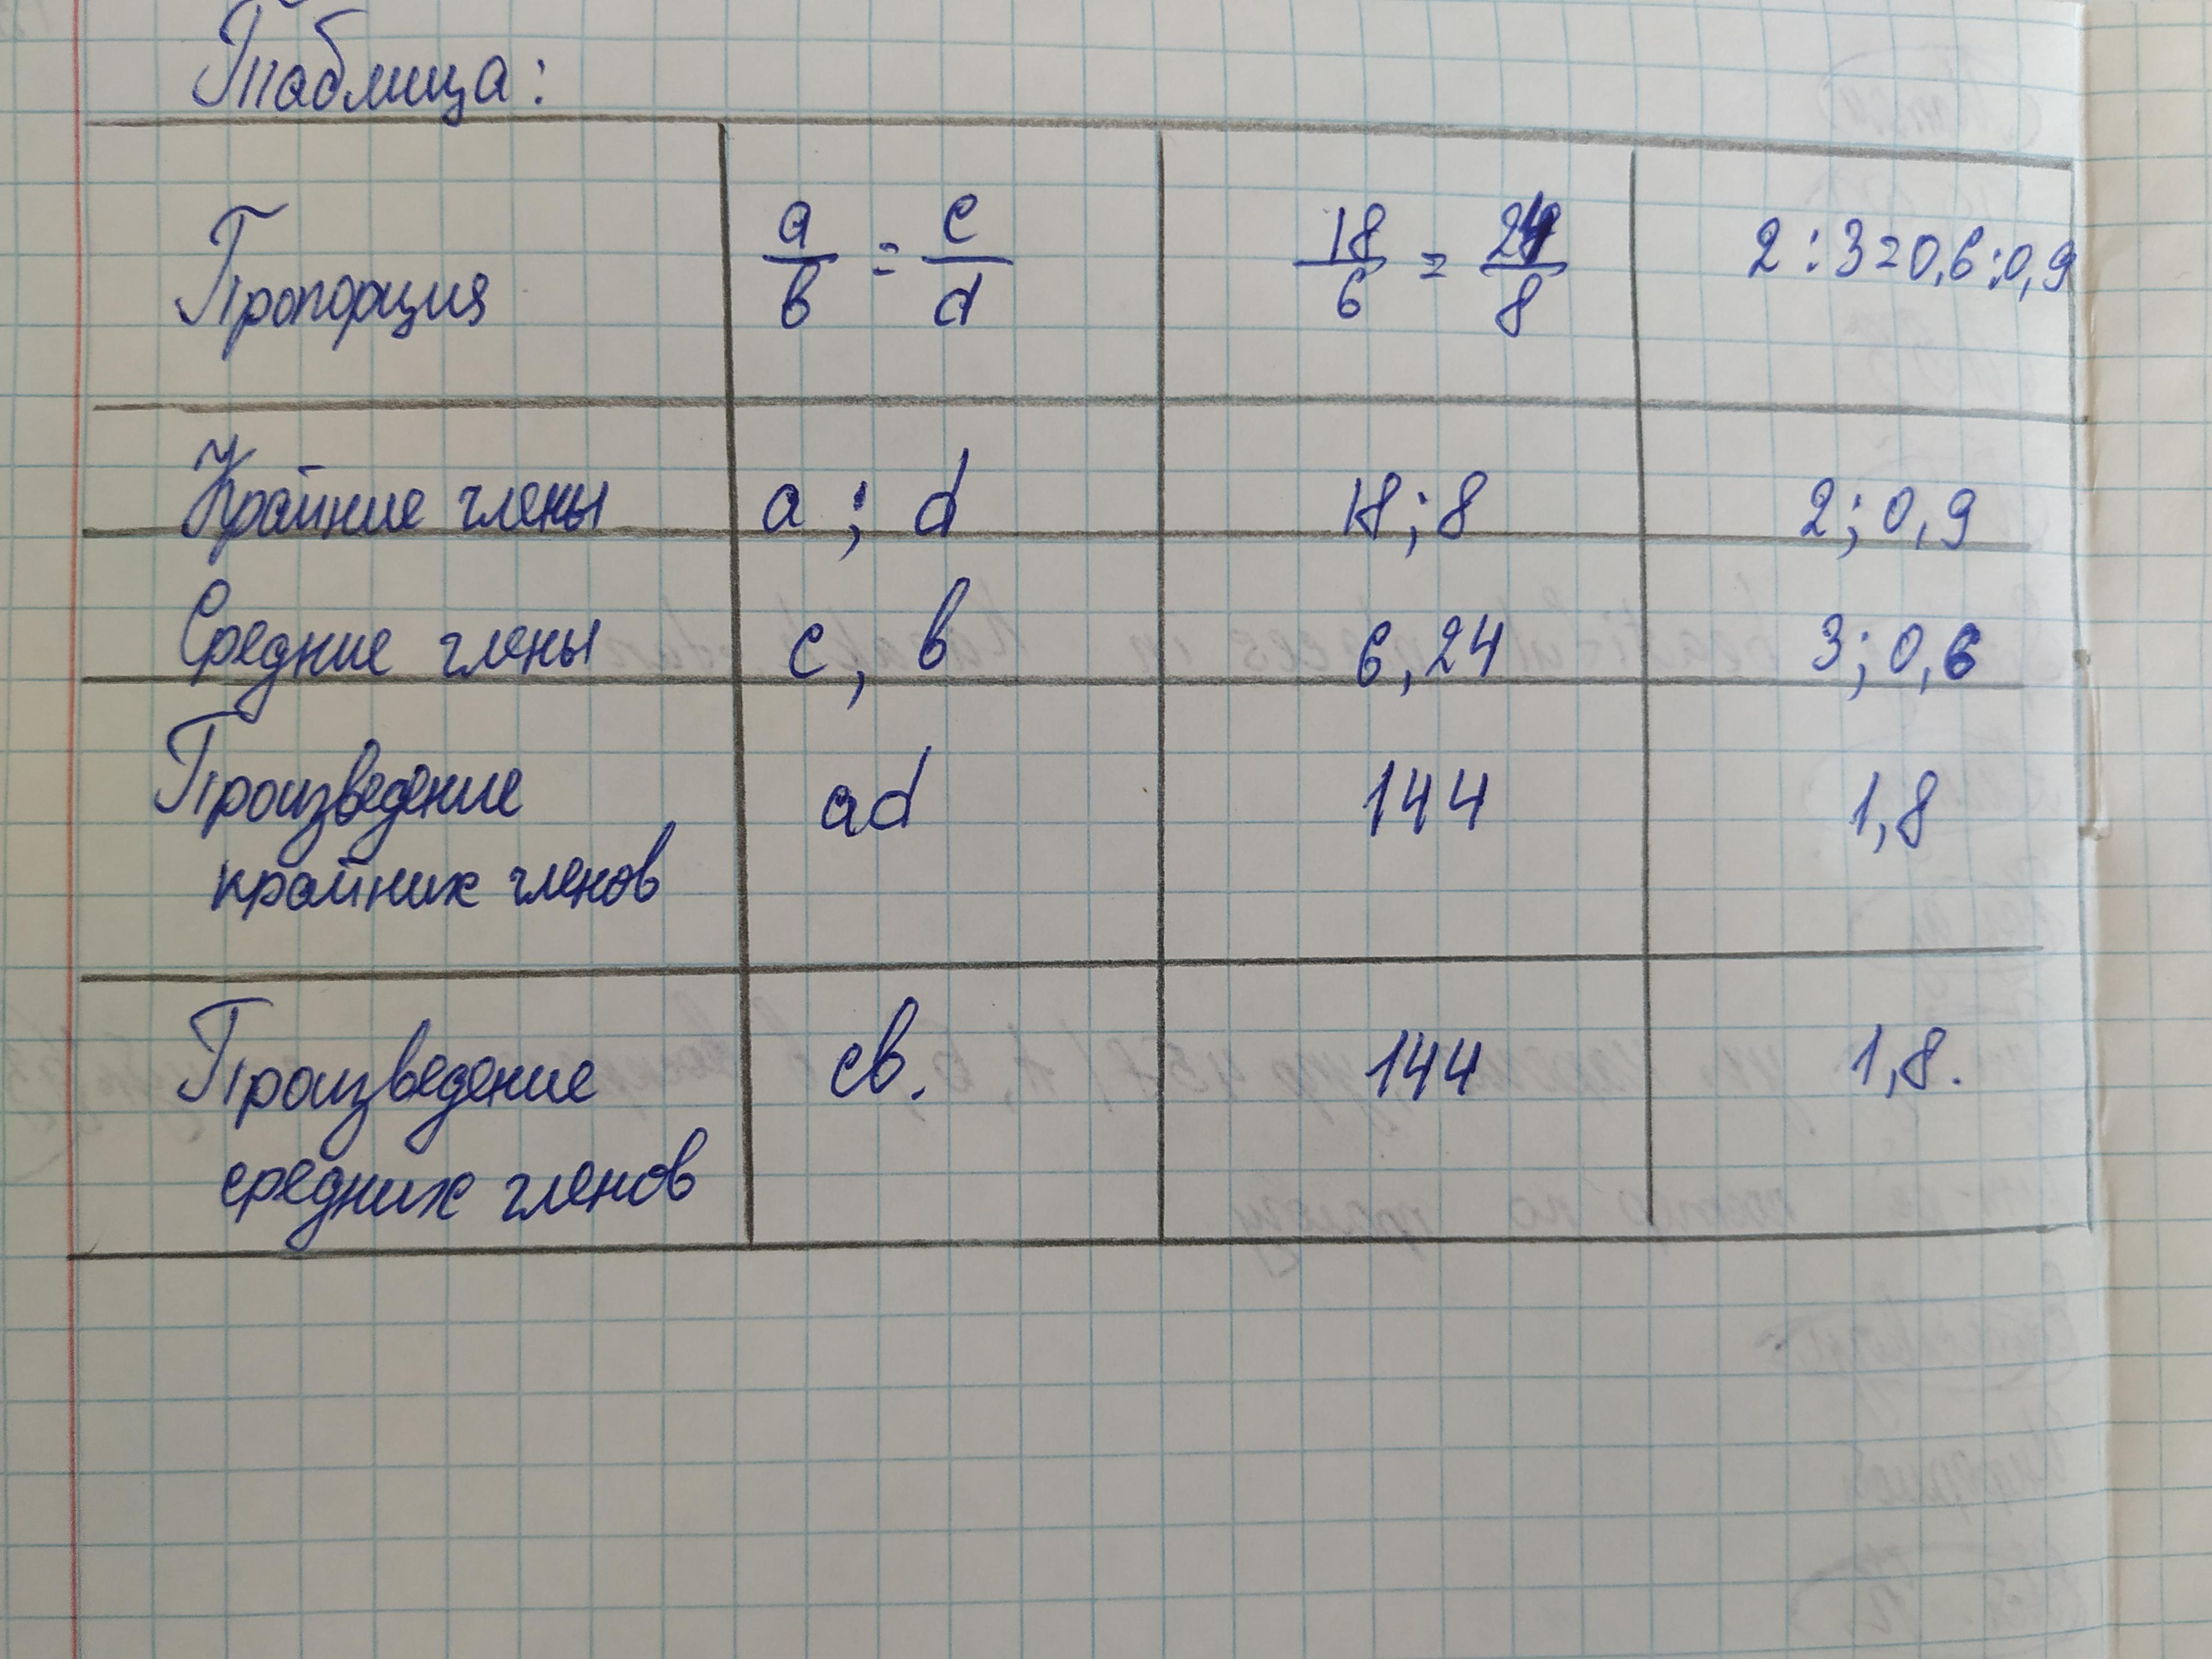 Таблица:
Пропорция a/b = c/d 18/6 = 24/8 2:3=0,6:0,9
Крайние члены a ; d 18;8 2;0,9
Средние члены c, b 6,24 3;0,6
Произведение ad 144 1,8
крайних членов
Произведение cb. 144 1,8.
средних членов